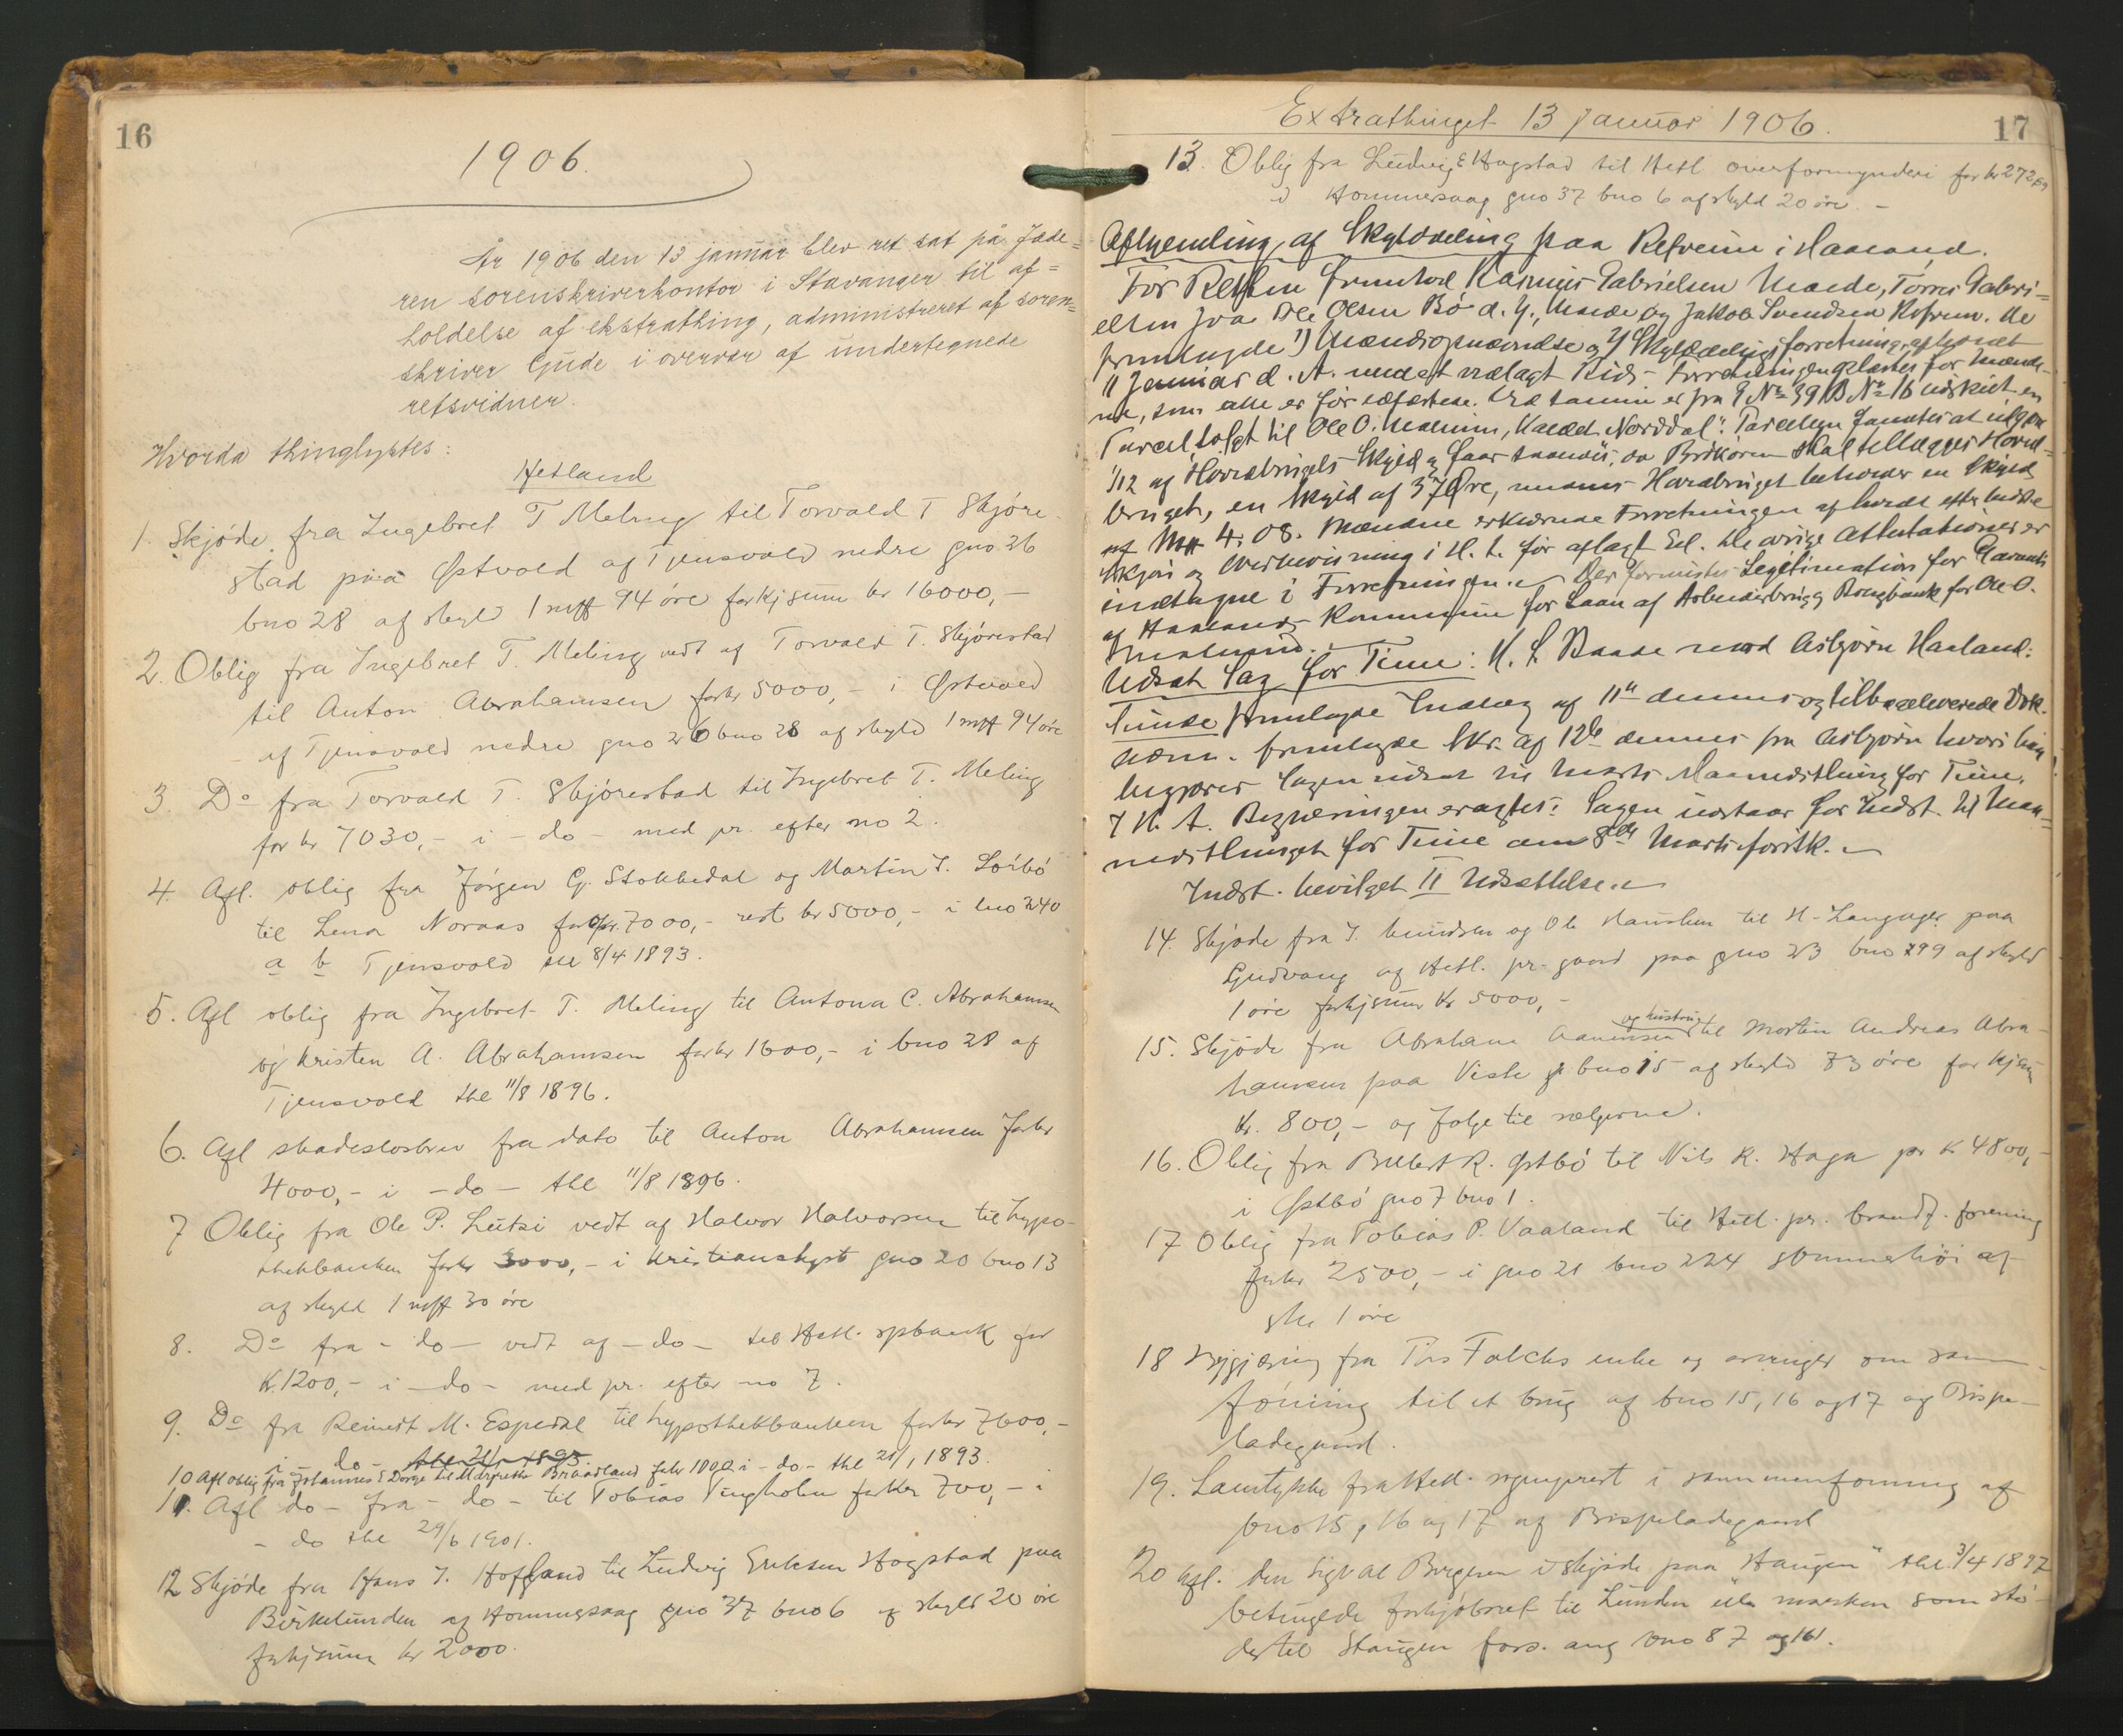 16
1906.
År 1906 den 13 januar blev ret sat på Jæde=
ren sorenskriverkontor i Stavanger til af=
holdelse af ekstrathing, administreret af soren=
skriver Gude i overvær af undertegnede
retsvidner.
Hvorda thinglystes:
Hetland
1. Skjøde fra Ingebret T Meling til Torvald T Skjøre
stad paa Østvold af Tjensvold nedre gno 26
bno 28 af skyld 1 mk 94 øre forkjsum kr 16000,-
2. Oblig fra Ingebret T. Meling vedt af Torvald T. Skjørestad
til Anton Abrahamsen forkr 5000,- i Østvold
af Tjensvold nedre gno 26 bno 28 af skyld 1 mk 94 øre
3. Do fra Torvald T. Skjørestad til Ingebret T. Meling
for kr 7030,- i - do - med pr. efter no 2.
4. Afl. oblig fra Jørgen G. Stokkedal og Martin T. Sørbø
til Lena Noraas for kr. 7000,- rest kr 5000,- i bno 240
a b Tjensvold thl 8/4 1893.
5. Afl oblig fra Ingebret T. Meling til Antona C. Abrahamsen
og Kristen A. Abrahamsen forkr 1600,- i bno 28 af
Tjensvold thl 11/8 1896.
6. Afl skadesløsbrev fra dato til Anton Abrahamsen forkr
4000,- i - do - thl 11/8 1896.
7 Oblig fra Ole P. Lutsi vedt af Halvor Halvorsen til hypo-
thekbanken forkr 3000,- i Kristianslyst gno 20 bno 13
af skyld 1 mk 30 øre
8. Do fra - do - vedt af - do - til Hetl. spbank for
K. 1200,- i - do - med pr. efter no 7.
9. Do fra Reinert M. Espedal til hypothekbanken forkr 7600,-
i - do -
10 Afl oblig fra Johannes E Dorge til Margrethe Braadland forkr 1000 i - do - thl 21/1 1893.
11. Afl do - fra - do - til Tobias Tingholm forkr 700,- i
- do thl 29/6 1901.
12 Skjøde fra Hans J. Hofland til Ludvig Eriksen Hogstad paa
Birkelunden af Hommersaag gno 37 bno 6 af skyld 20 øre
forkjsum kr 2000.
Extrathinget 13 januar 1906.
17
13. Oblig fra Ludvig E Hogstad til Hetl overformynderi for kr 272
i Hommersaag gno 37 bno 6 af skyld 20 øre. -
Afhjemling af Skylddeling paa Refveim i Haaland.
For Retten fremstod Rasmus Gabrielsen Malde, Torres Gabri=
elsen Joa Ole Olsen Bø d. y., Malde og Jakob Svendsen Refveim. De
fremlagde 1) Mændsopnævnelse og 2) Skylddelingsforretning, afholdt
11 Januar d. A. med et vedlagt Rids. Forretningen oplæstes for Mænde-
ne, som alle er før edfæstede. Ved samme er fra G No 39 B No 16 udskilt en
Parcel, solgt til Ole O. Malmin, kaldet "Norddal". Parcellen fandtes at udgjøre
1/12 af Hovedbrugets Skyld og faar saaledes, da Brøkøren skal tillægges Hoved-
bruget, en Skyld af 37 Øre, medens Hovedbruget beholder en Skyld
af Mk 4.08. Mændene erklærede Forretningen afholdt efter bedste
Skjøn og Overbevisning i H. t. før aflagt Ed. De øvrige Attestationer er
indtagne i Forretningen. Der fornødes Legitimation for Garanti
af Haalands Kommune for Laan af Arbeiderbrug og Boligbank for Ole O.
Malmin.
Udsat Sag for Time: K. L. Baade mod Asbjørn Haaland:
Lunde fremlagde Indlæg af 11te dennes og tilbageleverede Dok.
Dom. fremlagde Skr. af 12te dennes fra Asbjørn hvori han
begjærer Sagen udsat til Marts Maanedsthing for Time.
I H. t. Begjæringen eragtes: Sagen udstaar for Indst. til Maa-
nedsthinget for Time den 8de Marts førstk.
Indst. bevilget II Udsættelse.
14. Skjøde fra J. Knudsen og Ole Hausken til H. Langager paa
Gudvang af Hetl. pr.gaard paa gno 23 bno 299 af skyld
1 øre forkjsum kr 5000,-
15. Skjøde fra Abraham Aanensen og hustru til Martin Andreas Abra-
hamsen paa Viste bno 15 af skyld 73 øre for kjsum
kr. 800,- og følge til sælgerne.
16. Oblig fra Billert R. Østbø til Nils R. Haga for K 4800,-
i Østbø gno 7 bno 1.
17 Oblig fra Tobias P. Vaaland til Hetl. pr. brandf. forening
forkr 2500,- i gno 21 bno 224 Sommerhøi af
sky 1 øre
18 Begjæring fra Ths Falcks enke og arvinger om sam
føining til et brug af bno 15, 16 og 17 af Bispe-
ladegaard.
19. Samtykke fra Hetl. sogneprest i sammenføining af
bno 15, 16 og 17 af Bispeladegaard
20 Afl. den Sigvat Borgersen i skjøde paa "Haugen" thl. 3/4 1897
betingede forkjøbsret til Lunden eller marken som stø-
der til Haugen fors. ang bno 87 og 161.